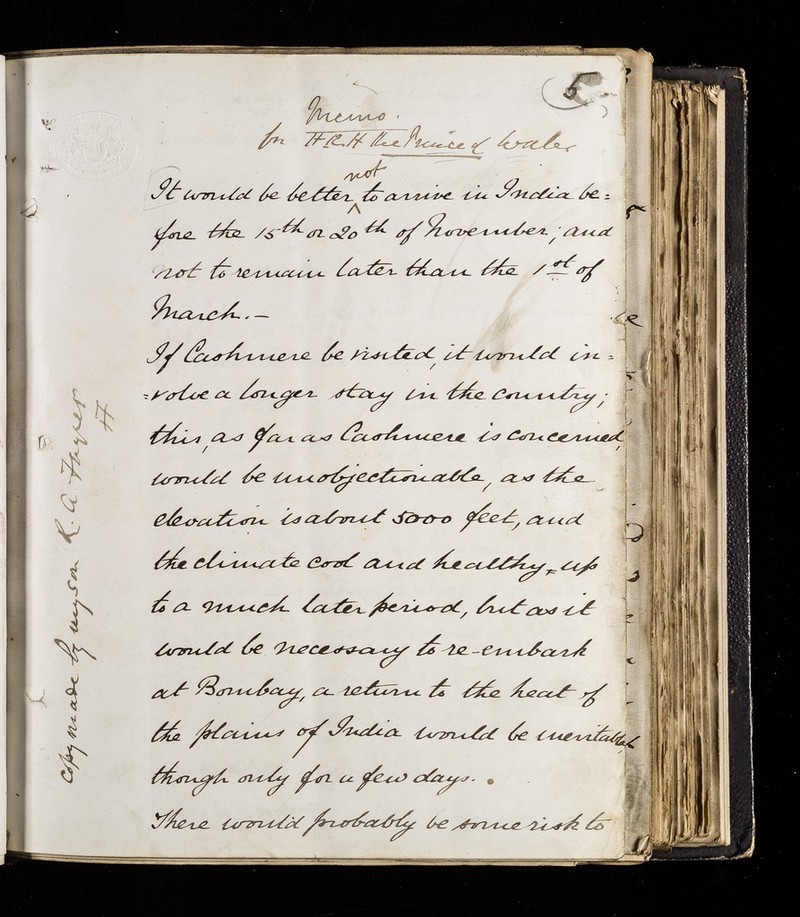 5
Memo.
for H.R.H the Prince of Wales
not
It would be better to arrive in India be=
fore the 15th or 20th of November; and
not to remain later than the 1st of
March. —
If Cashmere be visited, it would in=
=volve a longer stay in the country;
this, as far as Cashmere is concerned,
would be unobjectionable, as the
elevation is about 5000 feet, and
the climate cool and healthy, up
to a much later period, but as it
would be necessary to re-embark
at Bombay, a return to the heat of
the plains of India would be inevitable,
though only for a few days.
There would probably be some risk to
copy made by my son R. A. Fayrer